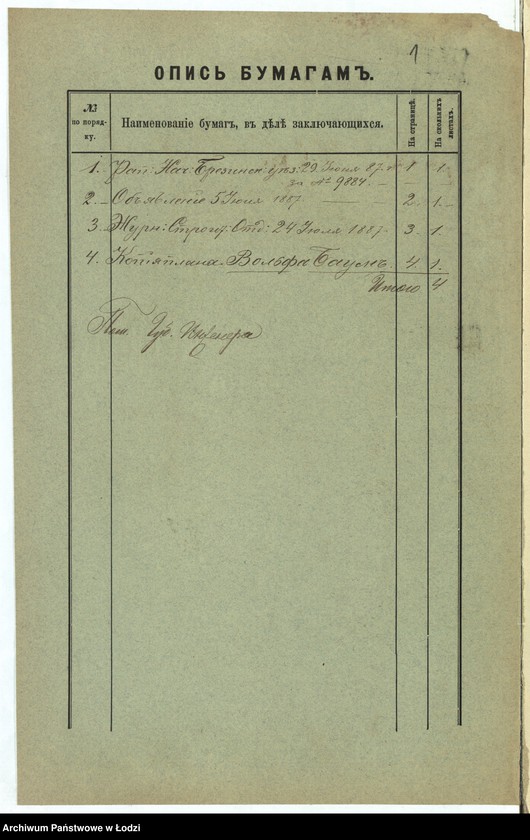 1
ОПИСЬ БУМАГАМЪ.
№ по порядку.
Наименованіе бумагъ, въ дѣлѣ заключающихся.
На страницѣ.
На сколькихъ листахъ.
1. Рап: Нач: Брезинск: уѣз: 29 Іюня 87 г. 1 1.
за № 9884. —
2. Объявленіе 5 Іюня 1887. 2. 1.
3. Журн: Строит: Отд: 24 Іюля 1887. 3. 1.
4. Копія плана Вольфа Баумъ 4. 1.
Итого 4
Губ. Инженера
Archiwum Państwowe w Łodzi